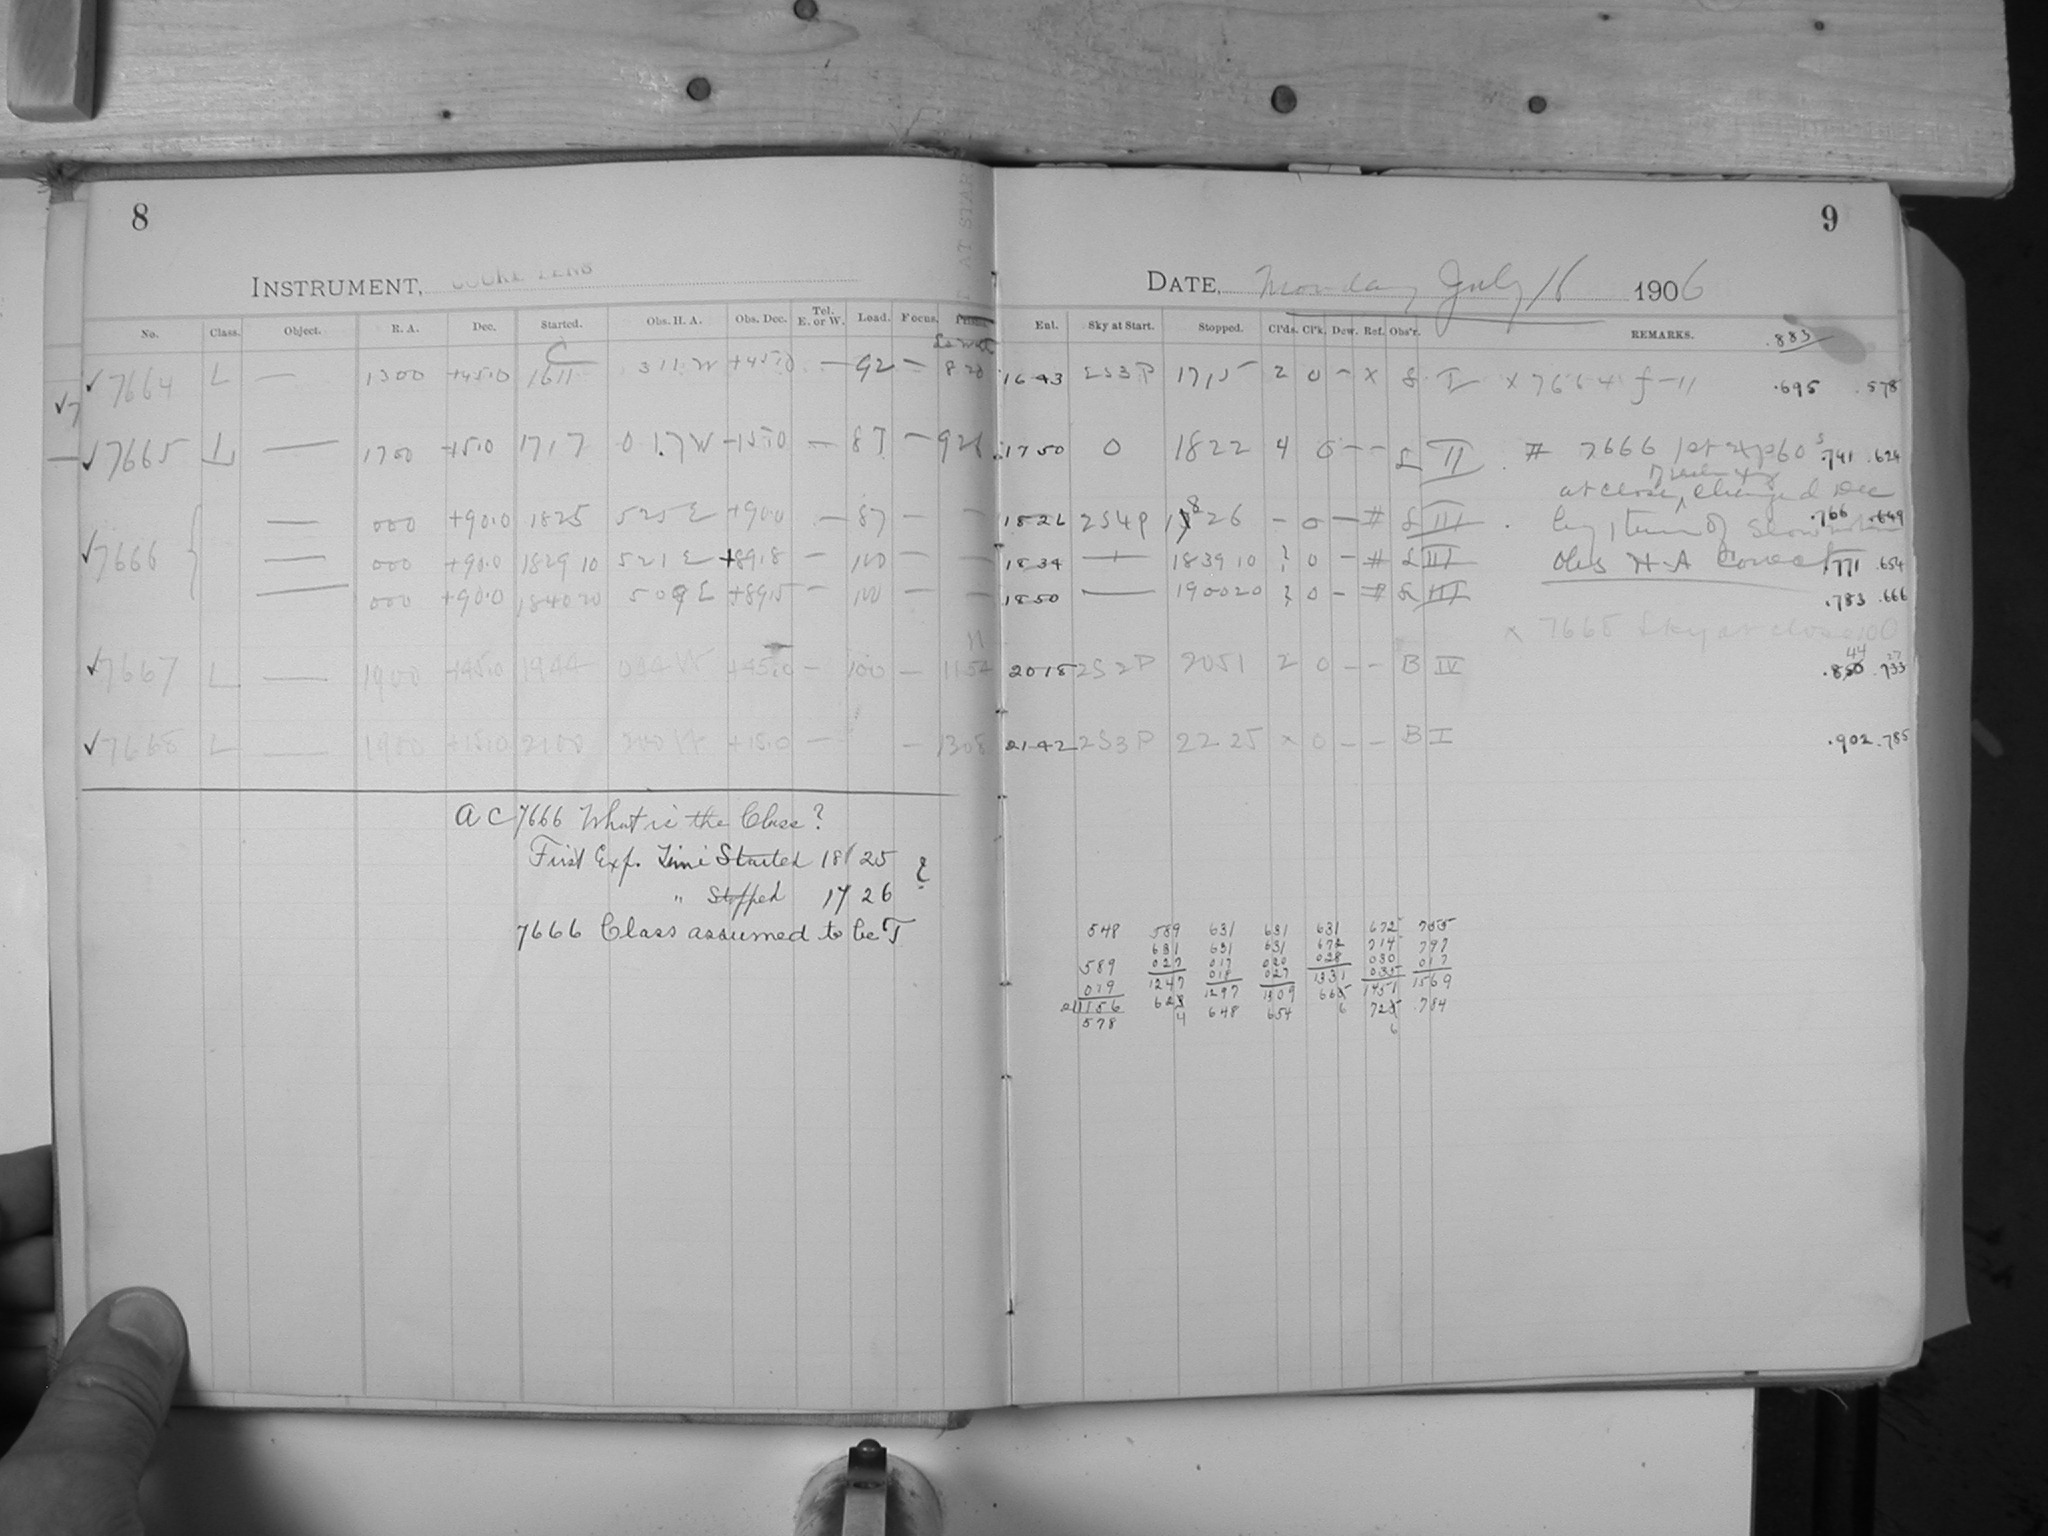 8
INSTRUMENT, COOKE LENS
No. Class. Object. R. A. Dec. Started. Obs. H. A. Obs. Dec. Tel. E. or W. Load. Focus.
✓7664 L — 1300 +45.0 1611 311 W +45.0 — 92 — 8 20
✓7665 L — 1700 +15.0 1717 0 17 W +15.0 — 87 — 926
— 000 +90.0 1825 525 E +90.0 — 87 — —
✓7666 — 000 +90.0 1829 10 521 E +89.8 — 100 — —
— 000 +90.0 1840 20 509 E +89.5 — 100 — —
✓7667 L — 1900 +45.0 1944 044 W +45.0 — 100 — 1152
✓7668 L — 1900 +15.0 2100 200 W +15.0 — — 1308
AC 7666 What is the Class?
First Exp. Time Started 18 25 ?
" Stopped 17 26
7666 Class assumed to be T
9
DATE, Monday July 16 1906
Ent. Sky at Start. Stopped. Cl'ds. Cl'k. Dew. Ref. Obs'r. REMARKS. .883
1643 2S3P 1715 2 0 — x L I x 7664 f-11 .695 .578
1750 0 1822 4 0 — — L II # 7666 1st exp 60s .741 .624
at close, changed Dec
1826 2S4P 1826 — 0 — # L III by 1 turn of slow motion .766 .649
1834 — 1839 10 } 0 — # L III Obs H-A Correct .771 .654
1850 — 1900 20 } 0 — # L III .783 .666
x 7668 Sky at close 100
2018 2S2P 2051 2 0 — — B IV .850 44 .733 27
2142 2S3P 2225 x 0 — — B I .902 .785
548 589 631 631 631 672 755
631 631 631 672 714 797
589 027 017 020 028 030 017
019 1247 018 027 1331 035 1569
2)1156 623 1297 1309 665 1451 .784
578 4 648 654 6 725
6